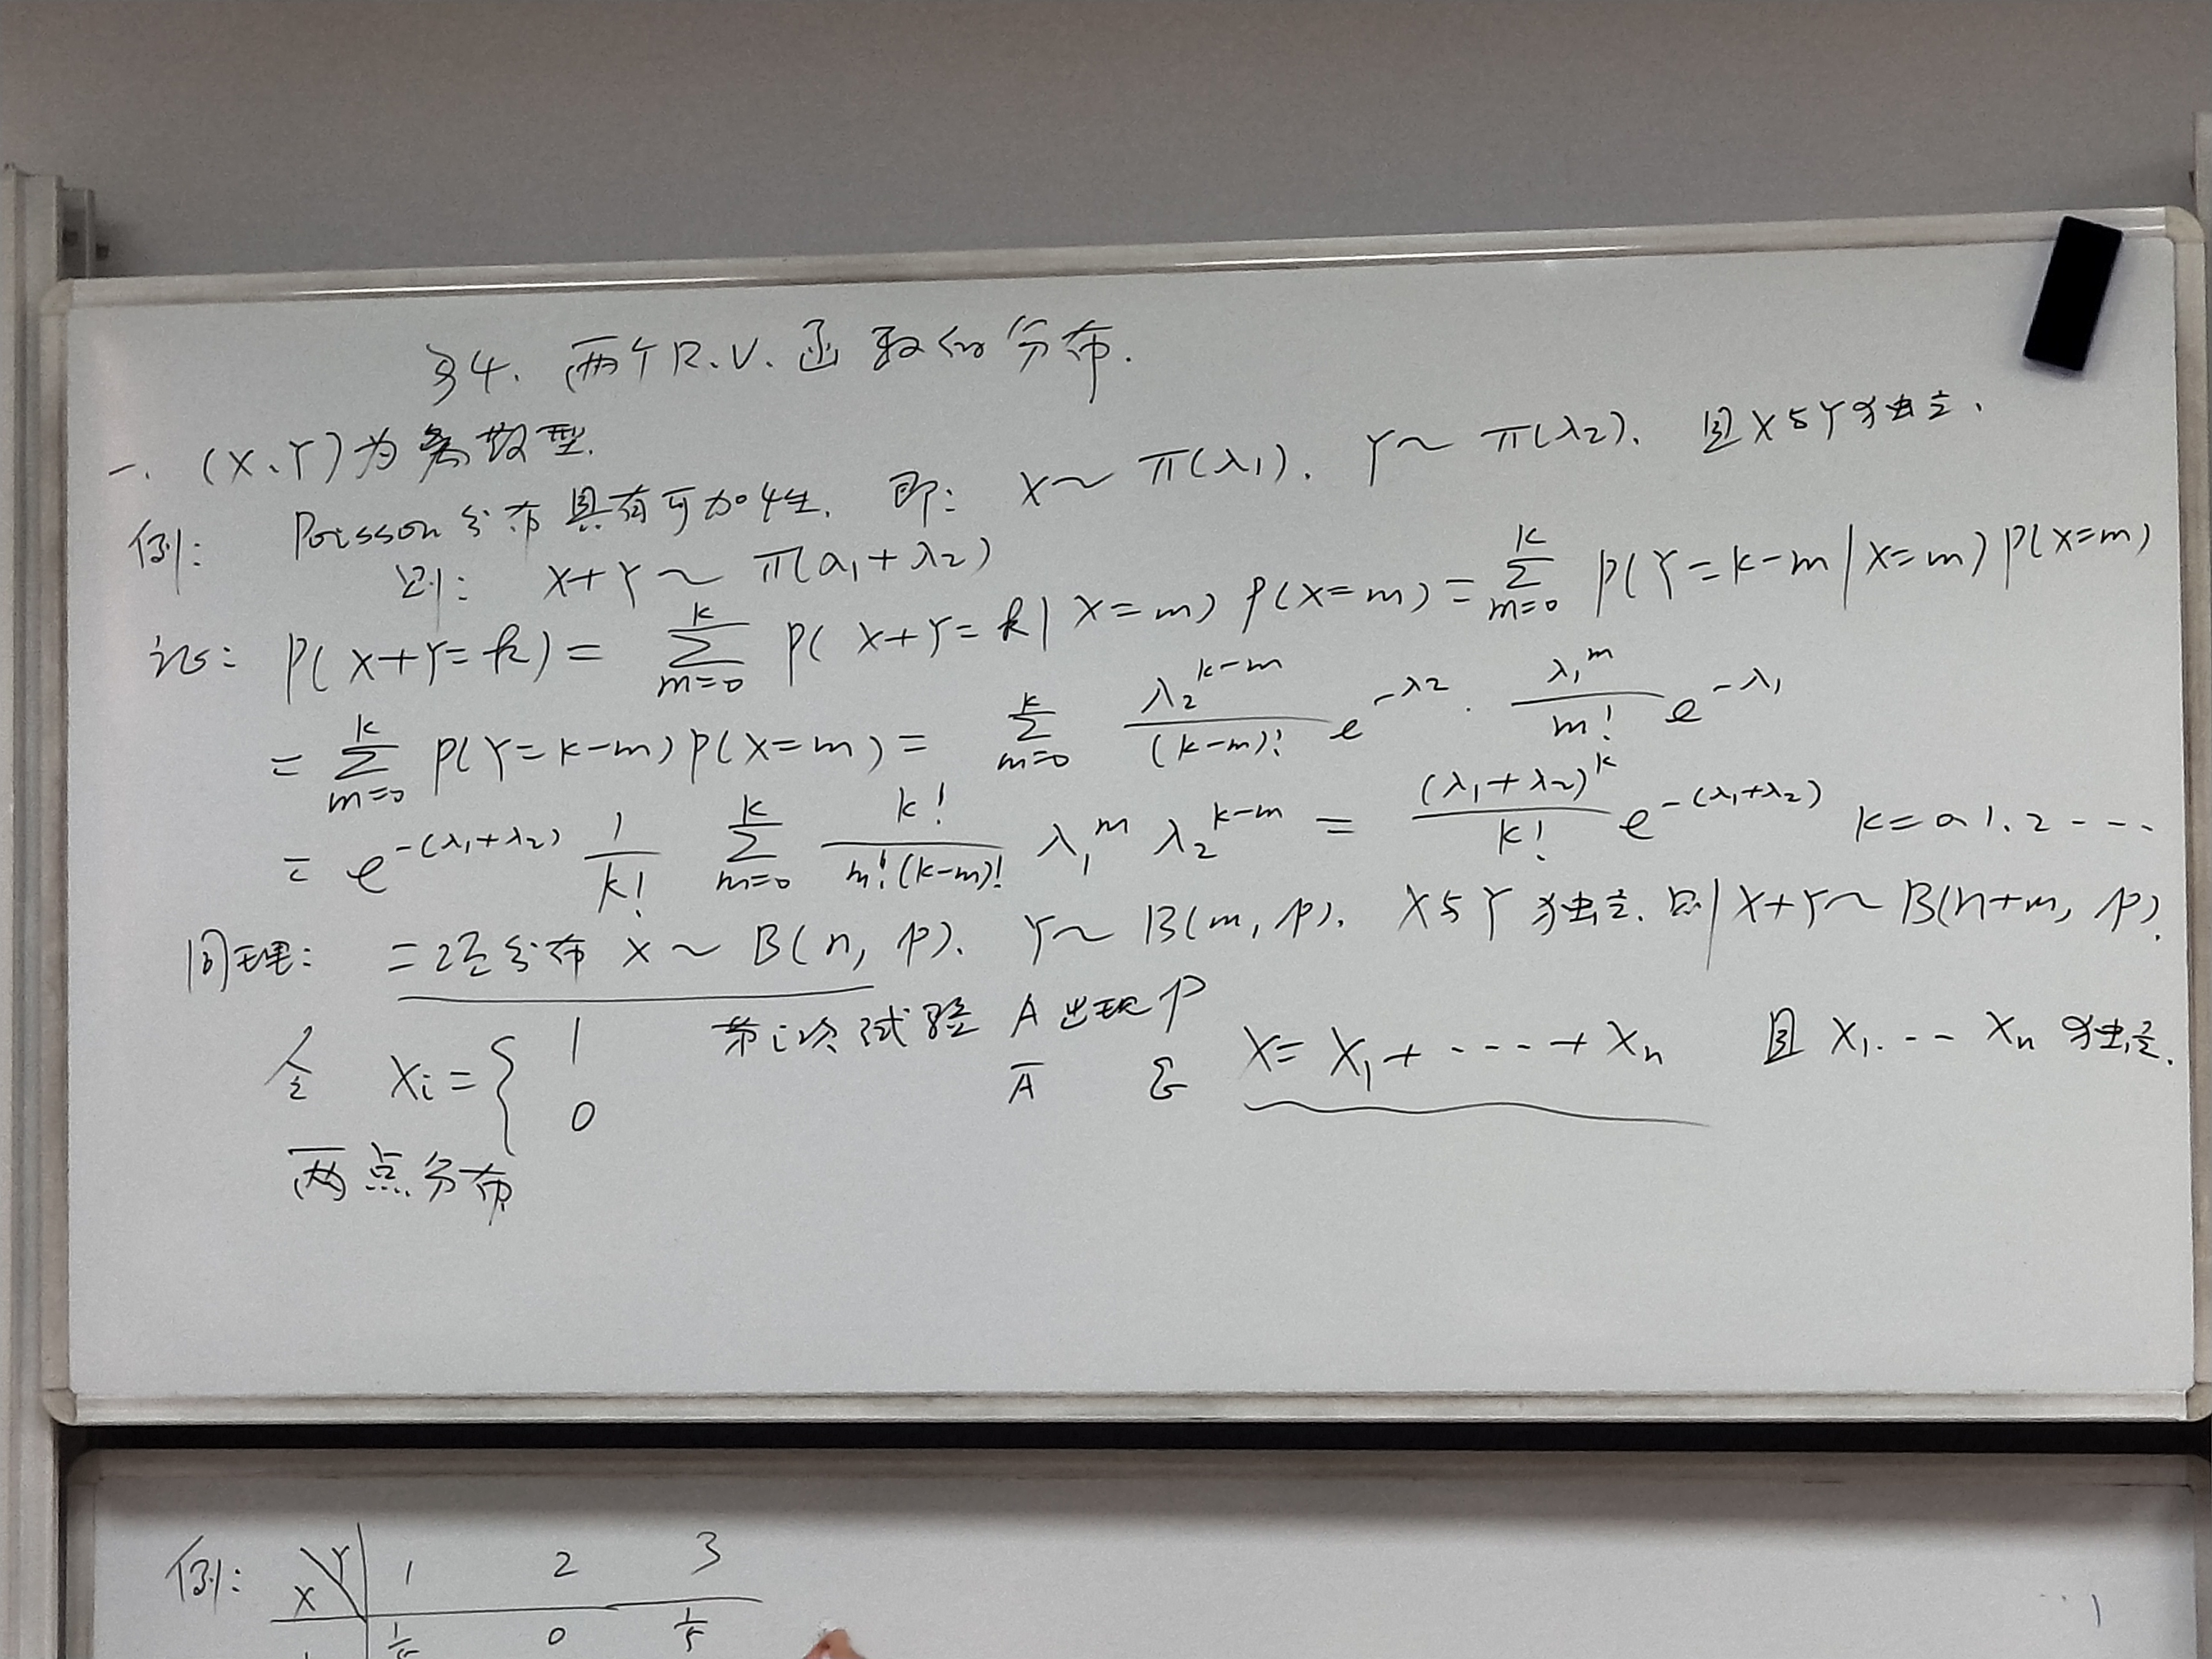 §4. 两个R.V.函数的分布.
一. (X、Y)为离散型.
例: Poisson分布具有可加性. 即: X~π(λ1). Y~π(λ2). 且X与Y独立.
则: X+Y~π(λ1+λ2)
证: P(X+Y=k) = ∑_{m=0}^{k} P(X+Y=k|X=m) P(X=m) = ∑_{m=0}^{k} P(Y=k-m|X=m) P(X=m)
= ∑_{m=0}^{k} P(Y=k-m) P(X=m) = ∑_{m=0}^{k} \frac{λ_2^{k-m}}{(k-m)!} e^{-λ_2} · \frac{λ_1^m}{m!} e^{-λ_1}
= e^{-(λ_1+λ_2)} \frac{1}{k!} ∑_{m=0}^{k} \frac{k!}{m!(k-m)!} λ_1^m λ_2^{k-m} = \frac{(λ_1+λ_2)^k}{k!} e^{-(λ_1+λ_2)} k=0.1.2----
同理: 二项分布 X~B(n, p). Y~B(m, p). X与Y独立. 则X+Y~B(n+m, p).
令 X_i = { 1 第i次试验 A出现 P
0 Ā X = X_1+----+X_n 且 X_1.--X_n 独立.
两点分布
例: X\Y 1 2 3
0 1/5